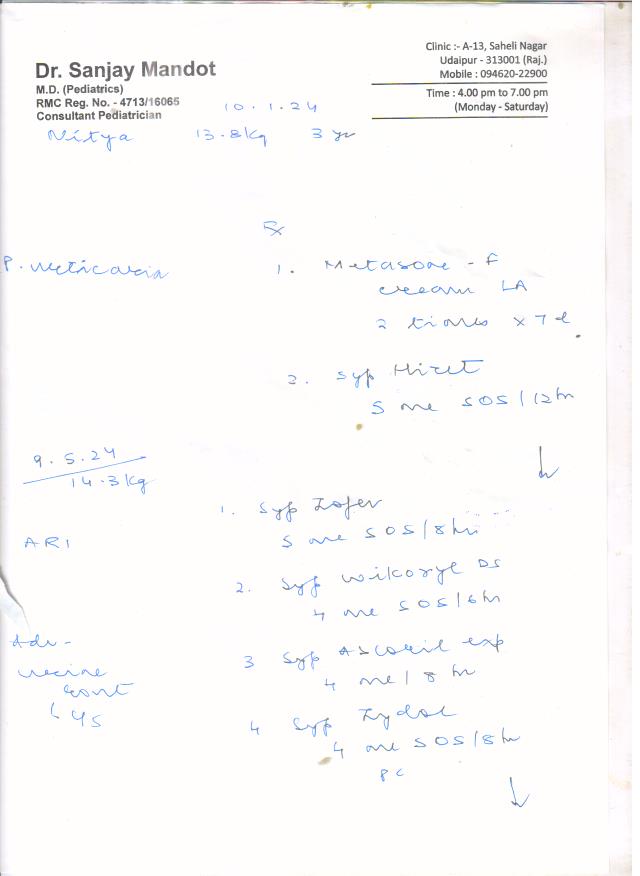 Dr. Sanjay Mandot
M.D. (Pediatrics)
RMC Reg. No. - 4713/16065
Consultant Pediatrician
Clinic :- A-13, Saheli Nagar
Udaipur - 313001 (Raj.)
Mobile : 094620-22900
Time : 4.00 pm to 7.00 pm
(Monday - Saturday)
10.1.24
Nitya 13.8kg 3 yr
Rx
P. Urticaria
1. Metasone - F
cream LA
2 times x 7 d
2. Syp Hicet
5 ml SOS/12 hr
9.5.24
14.3kg
ARI
1. Syp Zofer
5 ml SOS/8 hr
2. Syp Wikoryl DS
4 ml SOS/6 hr
Adv-
urine
3 Syp Ascoril exp
4 ml/8 hr
4 Syp
4 ml SOS/8 hr
PC